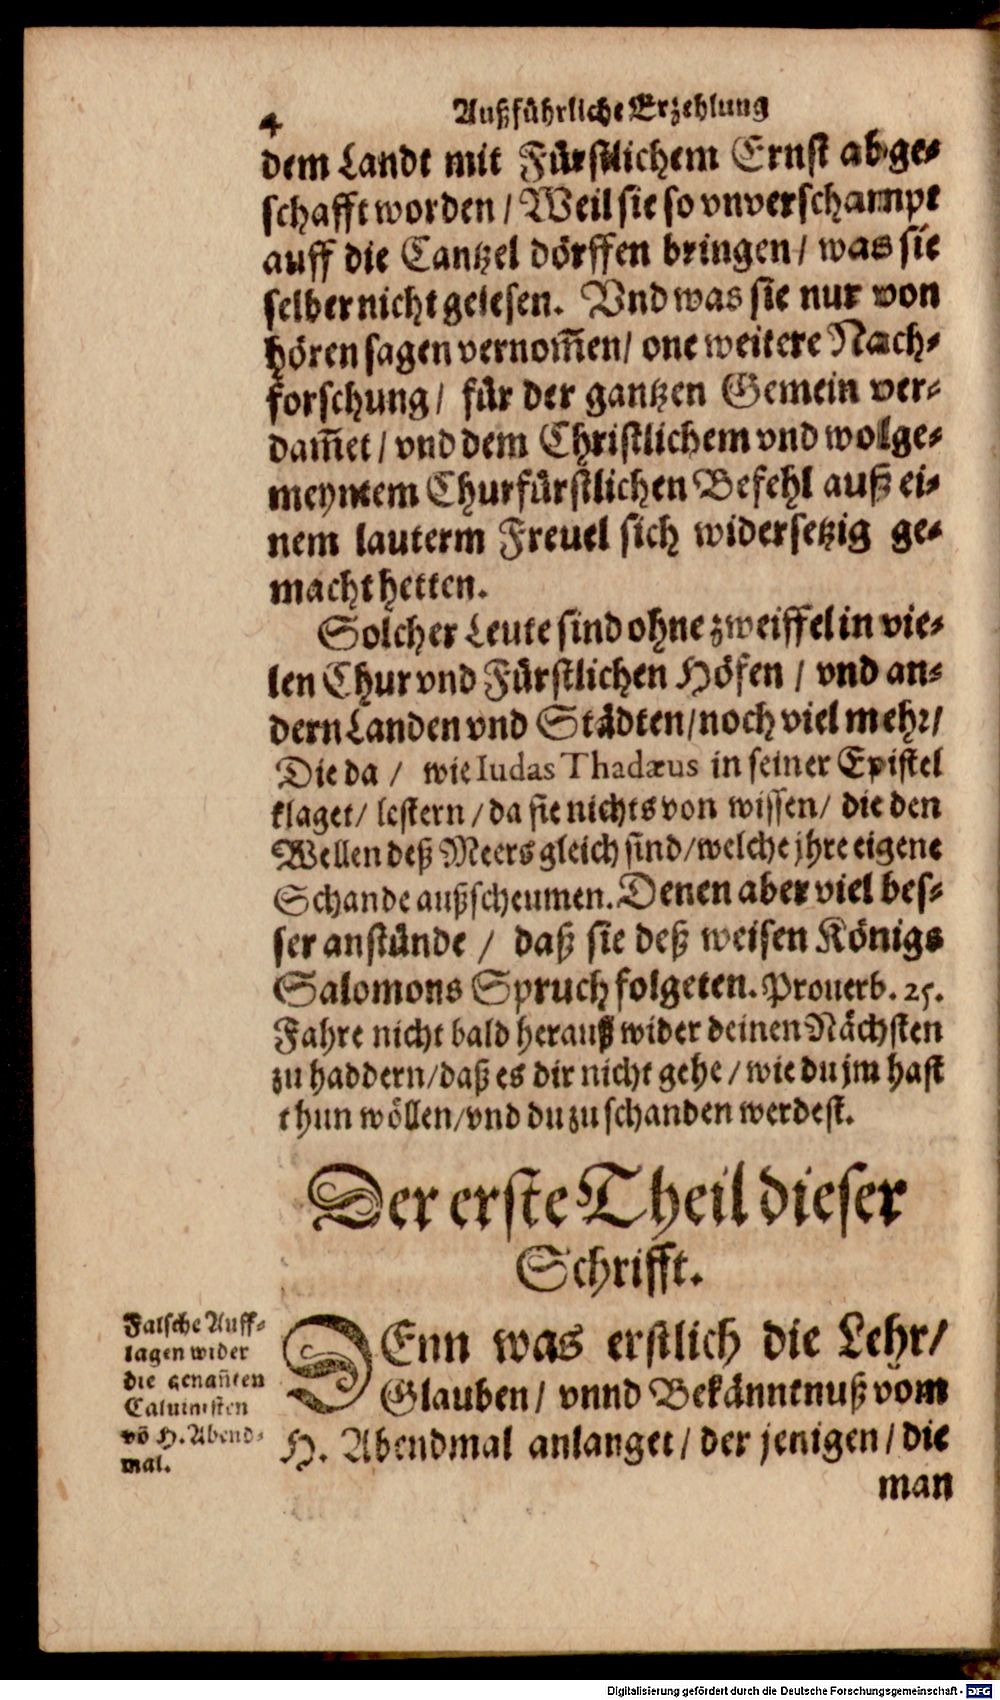 4
Außführliche Erzehlung
dem Landt mit Fürstlichem Ernst abge-
schafft worden / Weil sie so vnverschampt
auff die Cantzel dörffen bringen / was sie
selber nicht gelesen. Vnd was sie nur von
hören sagen vernom̃en / one weitere Nach-
forschung / für der gantzen Gemein ver-
dam̃et / vnd dem Christlichem vnd wolge-
meyntem Churfürstlichen Befehl auß ei-
nem lauterm Freuel sich widersetzig ge-
macht hetten.
Solcher Leute sind ohne zweiffel in vie-
len Chur vnd Fürstlichen Höfen / vnd an-
dern Landen vnd Städten / noch viel mehr /
Die da / wie Iudas Thadæus in seiner Epistel
klaget / lestern / da sie nichts von wissen / die den
Wellen deß Meers gleich sind / welche jhre eigene
Schande außscheumen. Denen aber viel bes-
ser anstünde / daß sie deß weisen Königs
Salomons Spruch folgeten. Prouerb. 25.
Fahre nicht bald herauß wider deinen Nächsten
zu haddern / daß es dir nicht gehe / wie du jm hast
thun wöllen / vnd du zu schanden werdest.
Der erste Theil dieser
Schrifft.
Falsche Auff-
lagen wider
die genañten
Caluinisten
võ H. Abend-
mal.
DEnn was erstlich die Lehr /
Glauben / vnnd Bekänntnuß vom
H. Abendmal anlanget / der jenigen / die
man
Digitalisierung gefördert durch die Deutsche Forschungsgemeinschaft - DFG